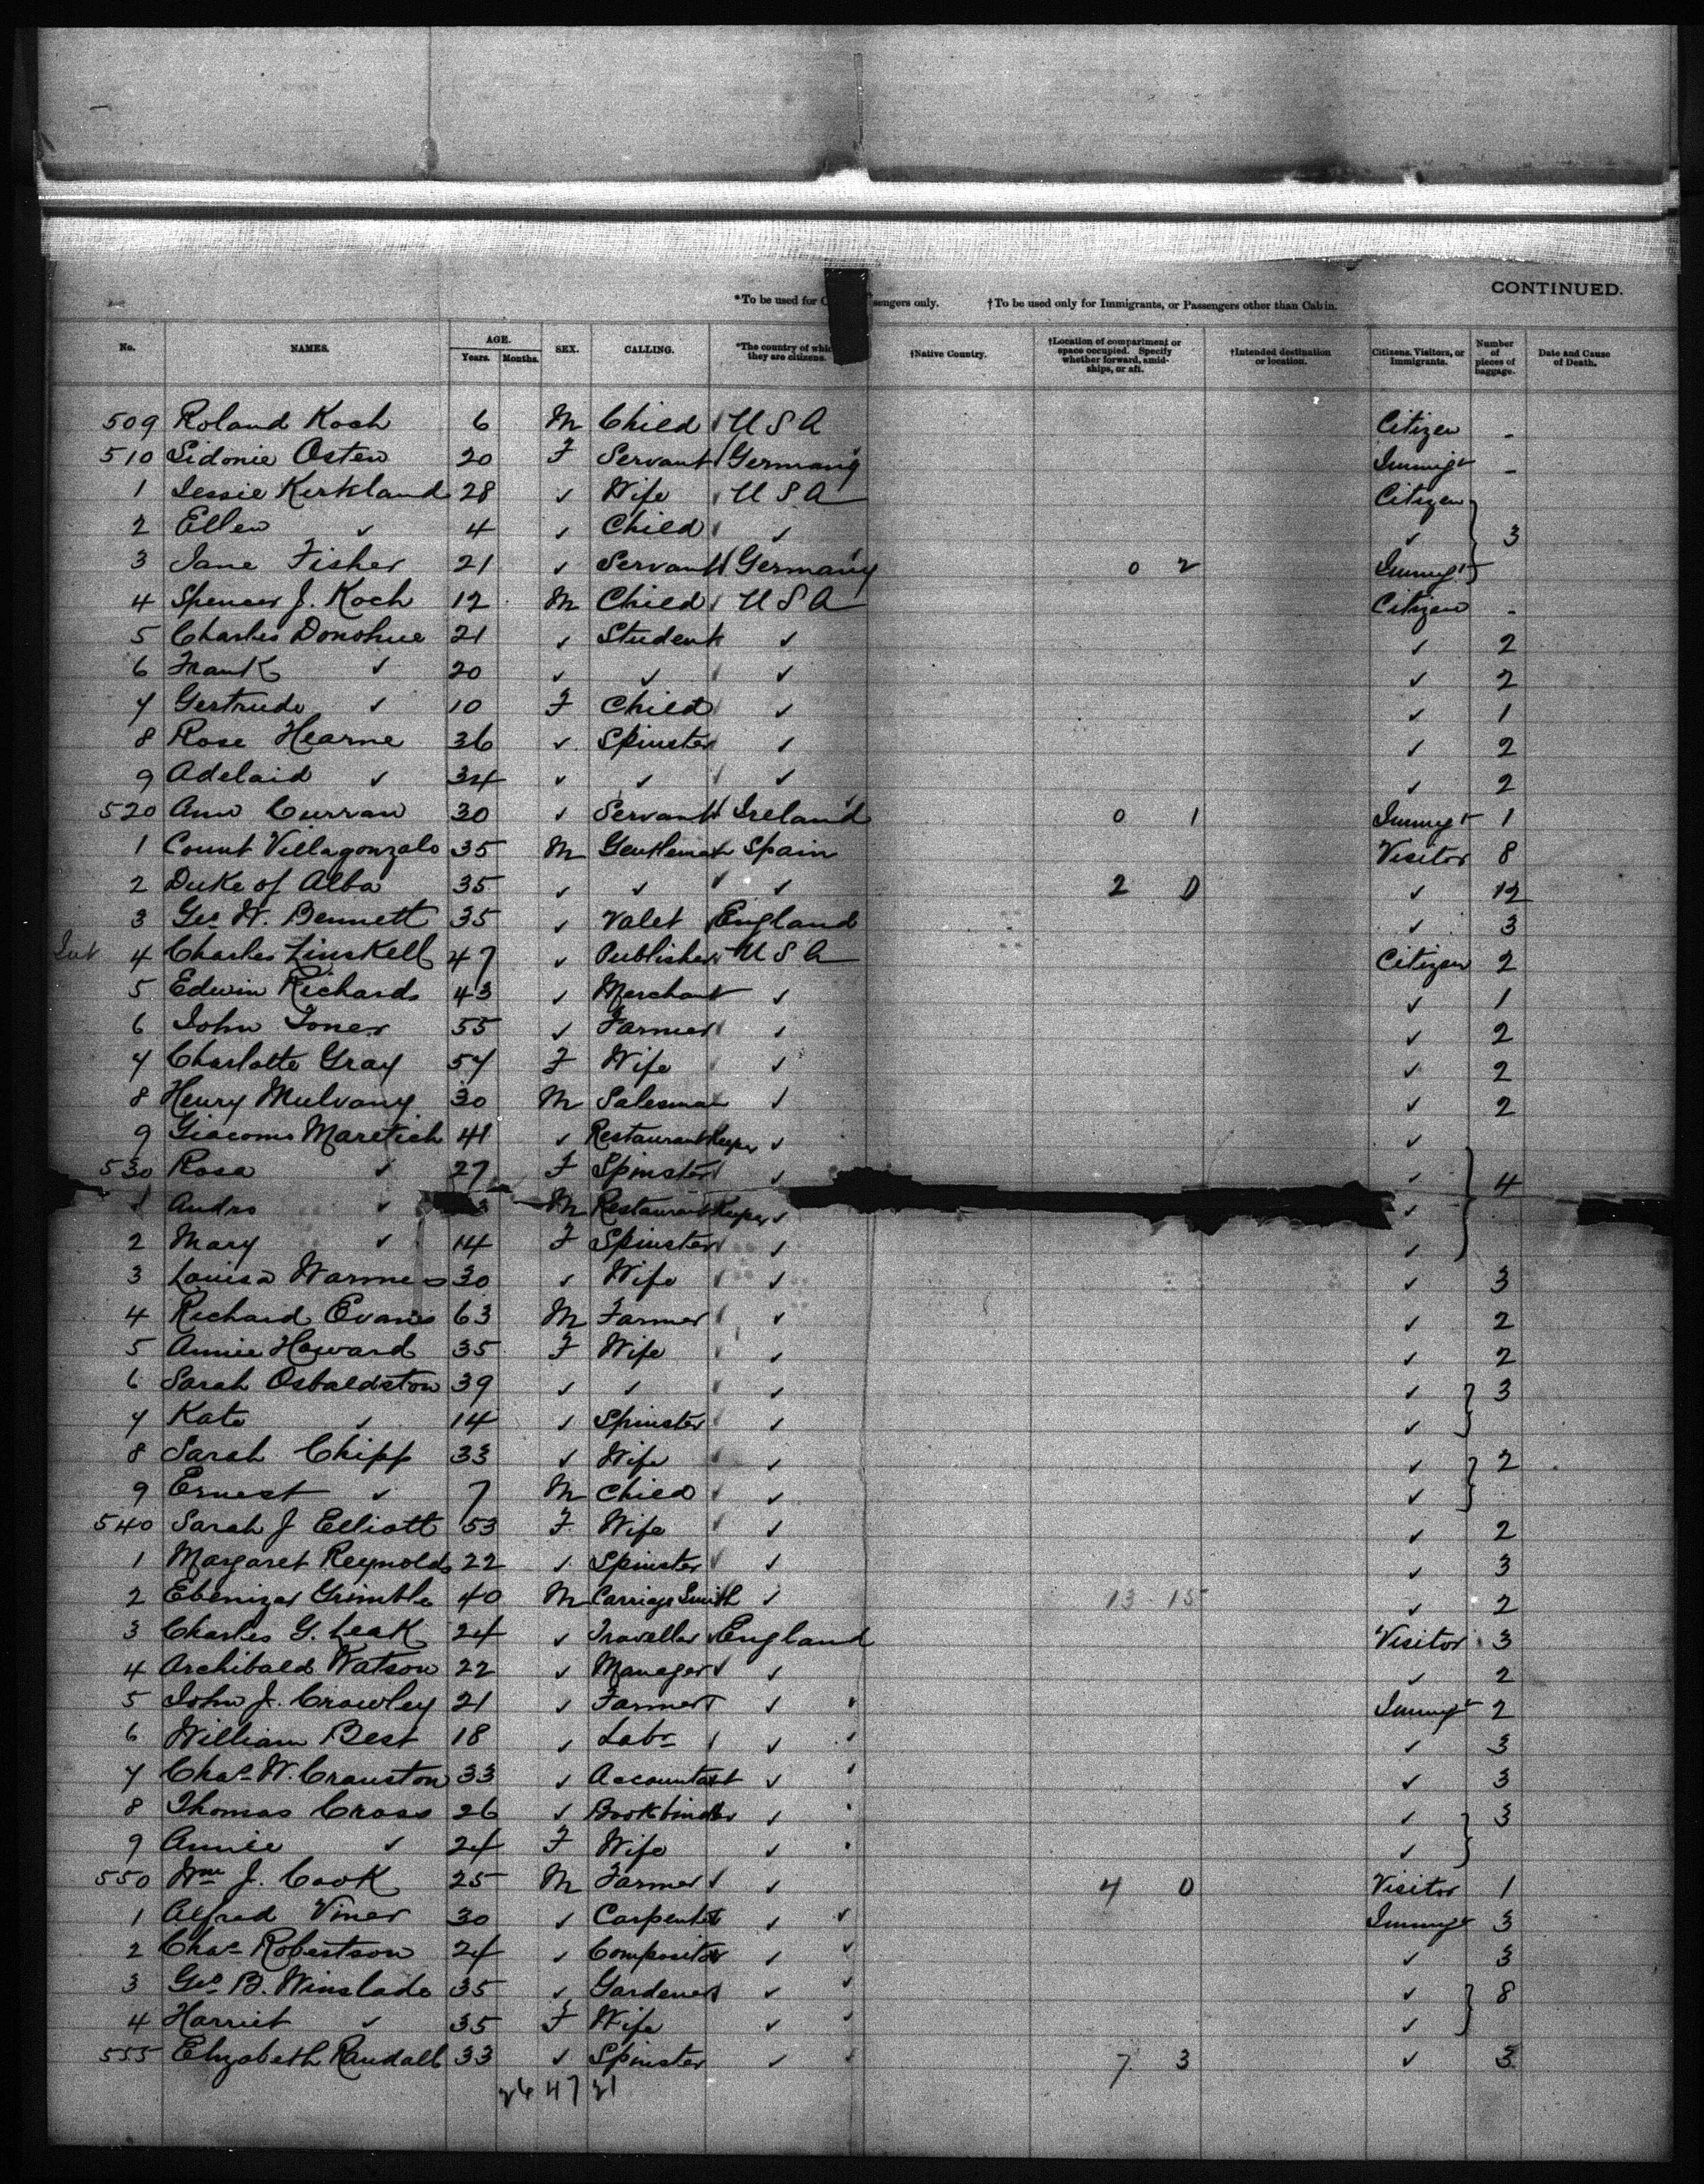 CONTINUED.
*To be used for C sengers only. †To be used only for Immigrants, or Passengers other than Cabin.
No. NAMES. AGE. Years. Months. SEX. CALLING. *The country of whi they are citizens. †Native Country. †Location of compartment or space occupied. Specify whether forward, amidships, or aft. †Intended destination or location. Citizens, Visitors, or Immigrants. Number of pieces of baggage. Date and Cause of Death.
509 Roland Koch 6 M Child U S A Citizen -
510 Sidonie Osten 20 F Servant Germany Immigt -
1 Jessie Kirkland 28 ✓ Wife U S A Citizen
2 Ellen ✓ 4 ✓ Child ✓ ✓ 3
3 Jane Fisher 21 ✓ Servant Germany 0 2 Immigt
4 Spencer J. Koch 12 M Child U S A Citizen -
5 Charles Donohue 21 ✓ Student ✓ ✓ 2
6 Frank ✓ 20 ✓ ✓ ✓ ✓ 2
7 Gertrude ✓ 10 F Child ✓ ✓ 1
8 Rose Hearne 36 ✓ Spinster ✓ ✓ 2
9 Adelaid ✓ 34 ✓ ✓ ✓ ✓ 2
520 Ann Curran 30 ✓ Servant Ireland 0 1 Immigt 1
1 Count Villagonzalo 35 M Gentleman Spain Visitor 8
2 Duke of Alba 35 ✓ ✓ ✓ 2 0 ✓ 12
3 Geo W. Bennett 35 ✓ Valet England ✓ 3
4 Charles Linskell 47 ✓ Publisher U S A Citizen 2
5 Edwin Richards 43 ✓ Merchant ✓ ✓ 1
6 John Toner 55 ✓ Farmer ✓ ✓ 2
7 Charlotte Gray 57 F Wife ✓ ✓ 2
8 Henry Mulvany 30 M Salesman ✓ ✓ 2
9 Giacomo Maretich 41 ✓ Restaurant Keeper ✓ ✓
530 Rosa ✓ 27 F Spinster ✓ ✓ 4
1 Andro ✓ 3 M Restaurant Keeper ✓ ✓
2 Mary ✓ 14 F Spinster ✓ ✓
3 Louisa 30 ✓ Wife ✓ ✓ 3
4 Richard Evans 63 M Farmer ✓ ✓ 2
5 Annie Howard 35 F Wife ✓ ✓ 2
6 Sarah Osbaldston 39 ✓ ✓ ✓ ✓ 3
7 Kate ✓ 14 ✓ Spinster ✓ ✓
8 Sarah Chipp 33 ✓ Wife ✓ ✓ 2
9 Ernest ✓ 7 M Child ✓ ✓
540 Sarah J Elliott 53 F Wife ✓ ✓ 2
1 Margaret Reynolds 22 ✓ Spinster ✓ ✓ 3
2 Ebenizer Grimble 40 M Carriage Smith ✓ 13 15 ✓ 2
3 Charles G. Leak 24 ✓ Traveller England Visitor 3
4 Archibald Watson 22 ✓ Manager ✓ ✓ 2
5 John J. Crowley 21 ✓ Farmer ✓ Immigt 2
6 William Best 18 ✓ Labr ✓ ✓ 3
7 Chas W. Cranston 33 ✓ Accountant ✓ ✓ 3
8 Thomas Cross 26 ✓ Bookbinder ✓ ✓ 3
9 Annie ✓ 24 F Wife ✓ ✓
550 Wm J. Cook 25 M Farmer ✓ 4 0 Visitor 1
1 Alfred Viner 30 ✓ Carpenter ✓ Immigt 3
2 Chas Robertson 24 ✓ Compositor ✓ ✓ 3
3 Geo B. Winslade 35 ✓ Gardener ✓ ✓ 8
4 Harriet ✓ 35 F Wife ✓ ✓
555 Elizabeth Randall 33 ✓ Spinster ✓ 7 3 ✓ 3
26 47 21